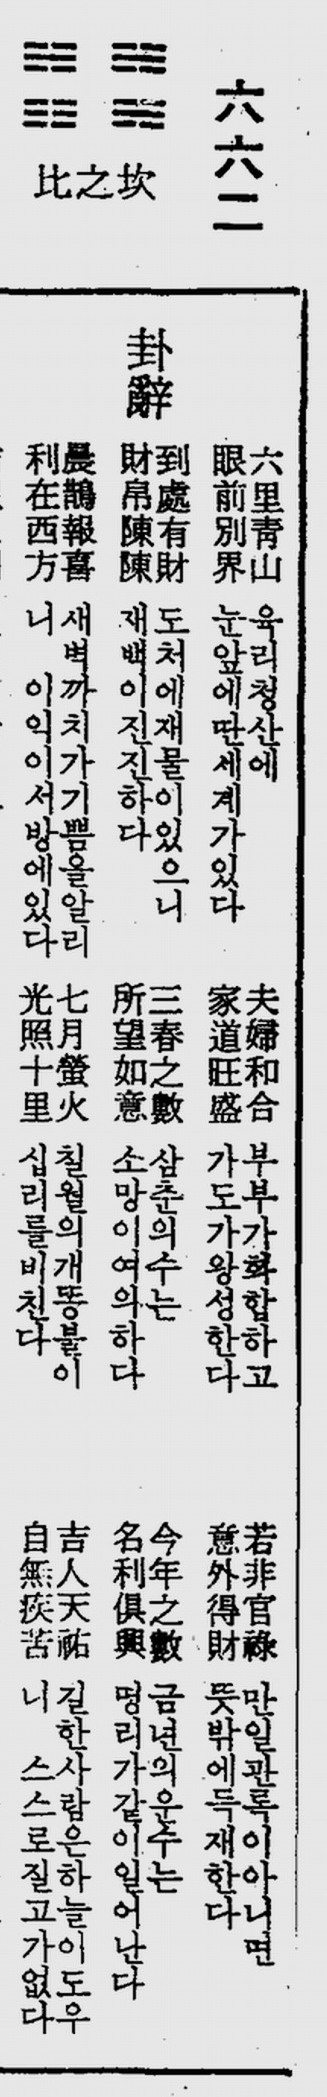 六六二
坎之比
卦辭
六里靑山
眼前別界
육리청산에
눈앞에딴세계가있다
夫婦和合
家道旺盛
부부가화합하고
가도가왕성한다
若非官祿
意外得財
만일관록이아니면
뜻밖에득재한다
到處有財
財帛陳陳
도처에재물이있으니
재백이진진하다
三春之數
所望如意
삼춘의수는
소망이여의하다
今年之數
名利俱興
금년의운수는
명리가같이일어난다
晨鵲報喜
利在西方
새벽까치가기쁨을알리
니 이익이서방에있다
七月螢火
光照十里
칠월의개똥불이
십리를비친다
吉人天祐
自無疾苦
길한사람은하늘이도우
니 스스로질고가없다